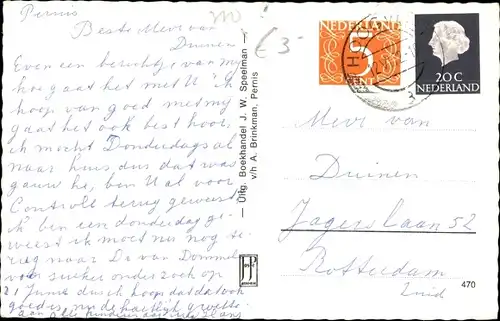 Pernis
Beste Mevr van
Duinen
Even een berichtje van mij
hoe gaat het met U ik
hoop van goed met mij
gaat het ook best hoor.
ik mocht Donderdags al
naar huis dus dat was
gauw he, ben U al voor
Controle terug geweest
ik ben een donderdag ge-
weest ik moet nu nog te-
rug naar Dr van Dommel
voor suiker onderzoek op
21 Junie dus ik hoop dat dat ook
goed is nu de hartelijke groeten
aan alle
€ 3-
Uitg. Boekhandel J. W. Speelman -
v/h A. Brinkman, Pernis
JP
NEDERLAND
5
CENT
20 C
NEDERLAND
Mevr van
Duinen
Jagerslaan 52
Rotterdam
Zuid
470